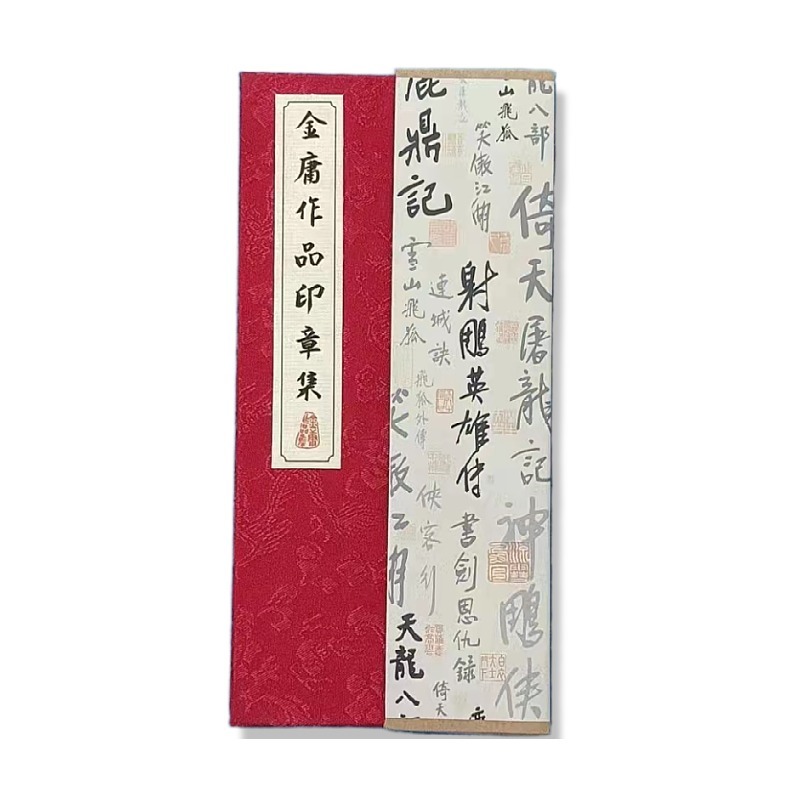 金庸作品印章集
鹿鼎記
雪山飛狐
笑傲江湖
山飛狐
龍八部
倚天屠龍記
射鵰英雄傳
連城訣
飛狐外傳
俠客行
書劍恩仇錄
神鵰俠
天龍八部
倚天